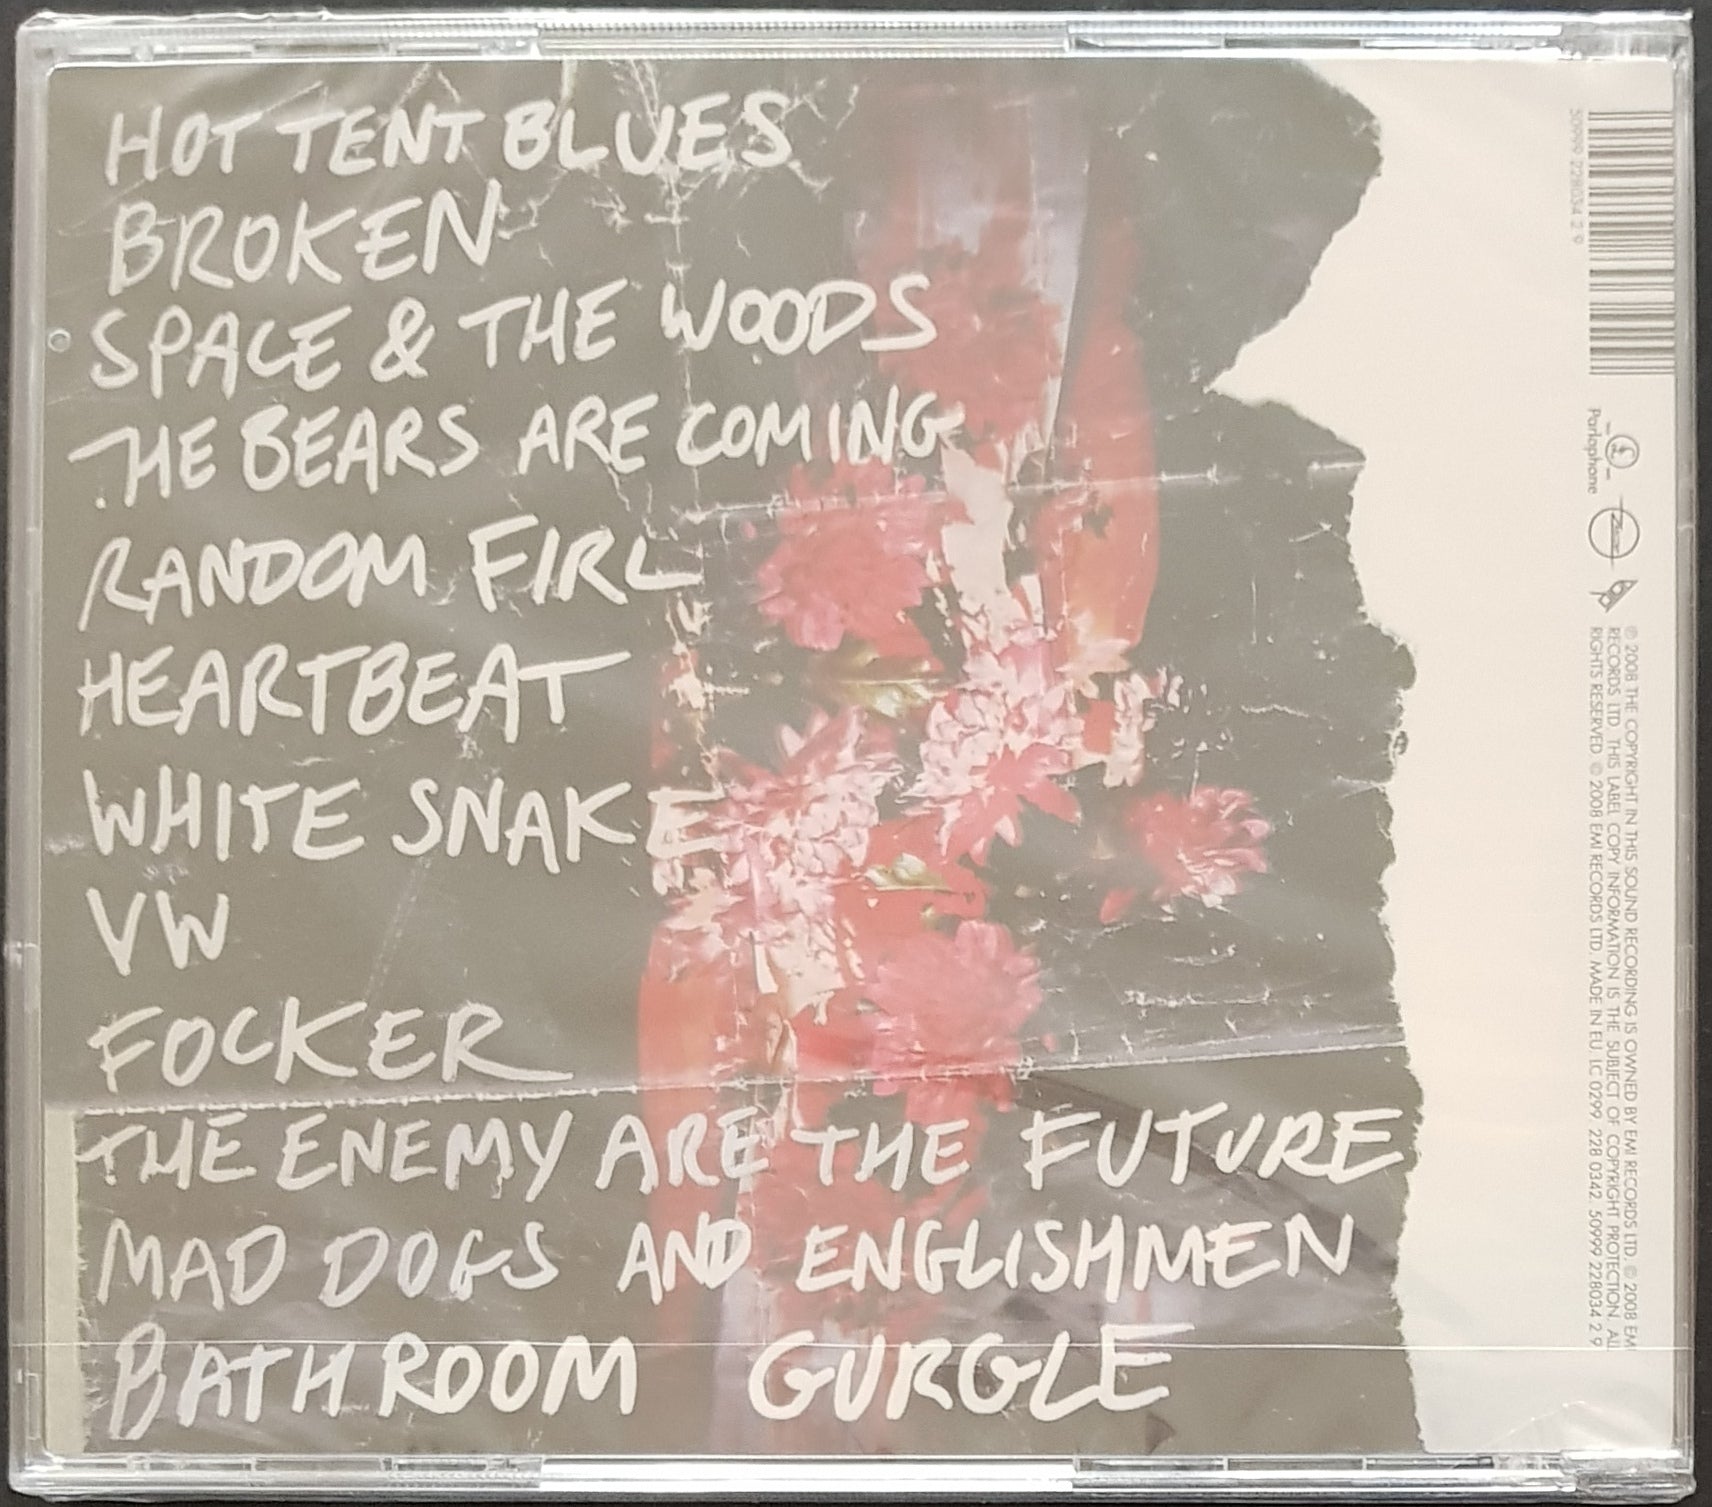 HOT TENT BLUES
BROKEN
SPACE & THE WOODS
THE BEARS ARE COMING
RANDOM FIRL
HEARTBEAT
WHITE SNAKE
VW
FOCKER
THE ENEMY ARE THE FUTURE
MAD DOGS AND ENGLISHMEN
BATHROOM GURGLE
50999 228034 2 9
£
Parlophone
℗ 2008 THE COPYRIGHT IN THIS SOUND RECORDING IS OWNED BY EMI RECORDS LTD. © 2008 EMI
RECORDS LTD. THIS LABEL COPY INFORMATION IS THE SUBJECT OF COPYRIGHT PROTECTION. ALL
RIGHTS RESERVED. © 2008 EMI RECORDS LTD. MADE IN EU. LC 0299. 228 0342. 50999 228034 2 9